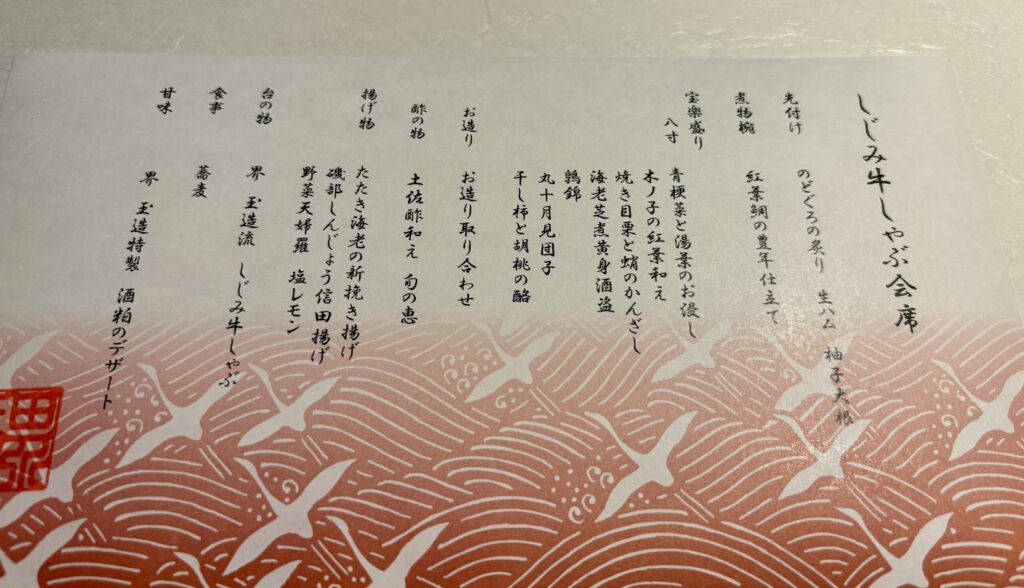 しじみ牛しゃぶ会席
先付け
のどぐろの炙り 生ハム 柚子大根
煮物椀
紅葉鯛の豊年仕立て
宝楽盛り
八寸
青梗菜と湯葉のお浸し
木ノ子の紅葉和え
焼き目栗と蛸のかんざし
海老芝煮黄身酒盗
鶉錦
丸十月見団子
干し柿と胡桃の酪
お造り
お造り取り合わせ
酢の物
土佐酢和え 旬の恵
揚げ物
たたき海老の新挽き揚げ
磯部しんじょう信田揚げ
野菜天婦羅 塩レモン
台の物
界 玉造流 しじみ牛しゃぶ
食事
蕎麦
甘味
界 玉造特製 酒粕のデザート